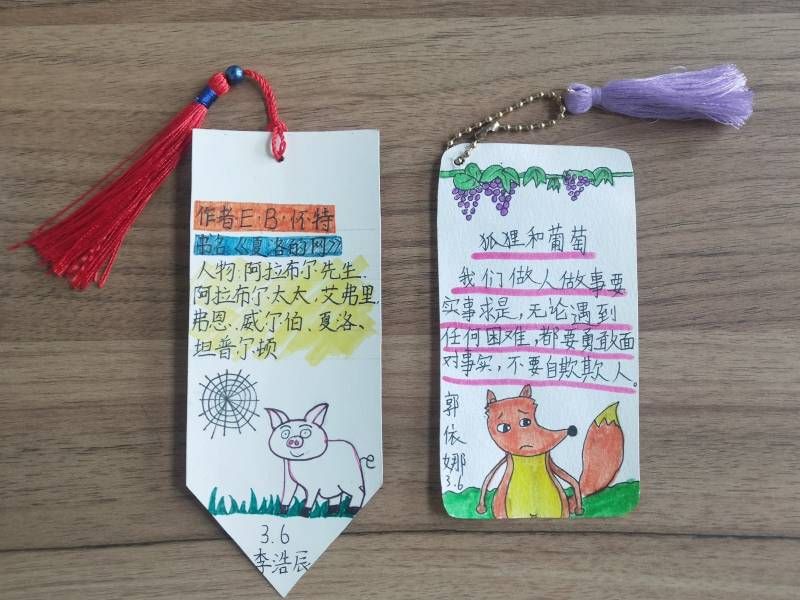 作者:E·B·怀特
书名《夏洛的网》
人物:阿拉布尔先生.
阿拉布尔太太,艾弗里,
弗恩.威尔伯、夏洛、
坦普尔顿
3.6
李浩辰
狐狸和葡萄
我们做人做事要
实事求是,无论遇到
任何困难,都要勇敢面
对事实,不要自欺欺人。
郭
依
娜
3.6